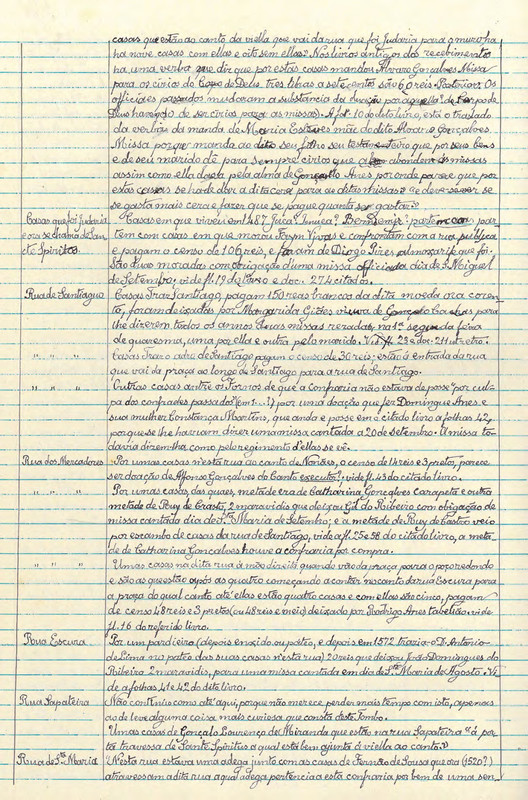 casas que estão ao canto da viella que vai da rua que foi Judaria para o muro; ha
ha nove casas com ellas e oito sem ellas? Nos livros antigos dos recebimentos
ha uma verba que diz que por estas casas mandou Alvaro Gonçalves Missa
para os cirios do Corpo de Deus tres libras a sete centos são 60 reis. Os
officiaes passados mudaram a substancia da
Deus havendo de ser cirios para as missas). A fol. 10 do dito livro, está o traslado
da verba da manda de Maria Esteves mãe do dito Alvaro Gonçalves
Missa porque manda ao dito seu filho seu testamenteiro que por seus bens
e de seu marido dê para sempre cirios que abondem ás missas
assim como ella dava pela alma de Gonçallo Anes por onde parece que por
estas casas se ha de dar a dita cera para as ditas missas e deve se ver se
se gasta mais cera e fazer que se pague quanta se gastar.
Casas que foi Judaria Casas em que viveu em 1487 Juca? par
e ora se chama de San tem com casas em que morou Feryn Vivas e confrontam com a rua publica
cto Spiritos e pagam o censo de 106 reis, e foram de Diogo Pires almoxarife que foi.
São duas moradas com obrigação d'uma missa officiada dia de S. Miguel
de Setembro; vide fl. 19 do livro e doc. 274 citados.
Rua de Santiaguo Casas Traz Santiago, pagam 150 reis brancos da dita moeda ora corren
to, foram deixadas por Margarida Giões viuva de Gonçalo para
lhe dizerem todos os annos duas missas rezadas, na 1ª segunda feira
de quaresma, uma por ella e outra pelo marido. Vid. fl. 23 e doc. 211 utretro.
" " " Casas Traz o adro de Santiago pagam o censo de 30 reis; estão á entrada da rua
que vai da praça ao longo de Santiago para a rua de Santiago.
" " " Outras casas antre os Fornos de que a confraria não estava de posse "por cul
pa dos confrades passados" (em 1...?) por uma doação que fez Domingue Anes e
sua mulher Constança Martins, que anda e posse em o citado livro a folhas 42,
porque se lhe haviam dizer uma missa cantada a 20 de Setembro. A missa to
davia dizem-lha, como pelo regimento d'ellas se vê.
Rua dos Mercadores Por umas casas n'esta rua ao canto de Nonães, o censo de 14 reis e 3 preto, parece
ser doação de Affonso Gonçalves do Canto executo?, vide fl. 43 do citado livro.
" " " Por umas casas, das quaes, metade era de Catharina Gonçalves carapeta e outra
metade de Ruy de Crasto, 2 maravidis que deixou Gil do Ribeiro com obrigação de
missa cantada dia de Sta Maria de Setembro; e a metade de Ruy de Castro veio
por escambo de casas da rua de Santiago, vide a fl. 25 e 58 do citado livro, a meta
de de Catharina Gonçalves houve a confraria por compra.
" " " Umas casas na dita rua á mão direita quando vão da praça para o poço redondo
e são as que estão após as quatro começando a contar no canto da rua Escura para
a praça do qual canto até ellas estão quatro casas e com ellas são cinco, pagam
de censo 48 reis e 3 pretos (ou 48 reis e meio) deixado por Rodrigo Anes tabelião. vide
fl. 16 do referido livro.
Rua Escura Por um pardieiro (depois enxido ou posto, e depois em 1572 trazia-o Dr. Antonio
de Lima no pateo das suas casas n'esta rua) 20 reis que deixou João Domingues do
Ribeiro 2 maravidis, para uma missa cantada em dia de Sta Maria de Agosto. Vi
de a folhas 41 e 42 do dito livro.
Rua Sapateira Não continuo como até aqui, porque não merece perder mais tempo com isto, apenas
ao de leve alguma coisa mais curiosa que consta deste Tombo.
"Umas casas de Gonçalo Lourenço de Miranda que estão na rua Sapateira "á por
ta travessa de Sante Spiritus a qual está bem ajunta á viella ao canto."
Rua de Sta Maria "N'esta rua estava uma adega junto com as casas de Fernão de Sousa que ora (1520?)
atravessam a dita rua a qual adega pertencia a esta confraria por bem de uma sen